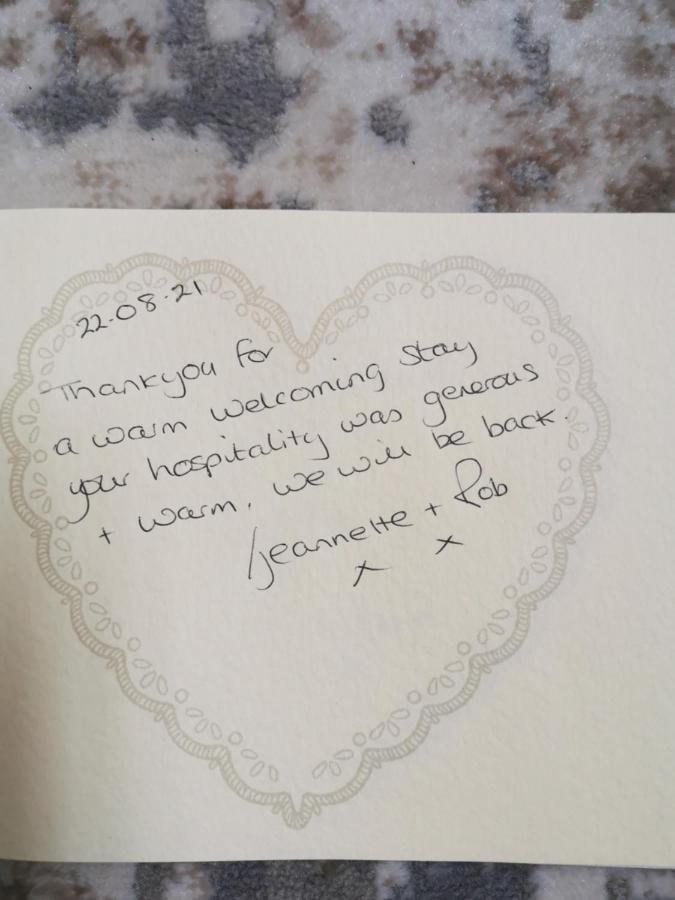 22.08.21
Thankyou for
a warm welcoming stay
your hospitality was generous
+ warm. we will be back.
Jeannette + Rob
x x